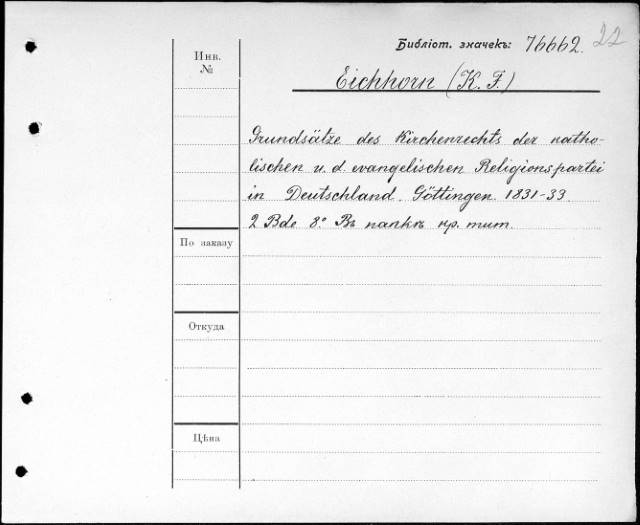 Библіот. значекъ: 76662. 22
Инв.
№
Eichhorn (K. F.)
Grundsätze des Kirchenrechts der katho-
lischen u. d. evangelischen Religionspartei
in Deutschland. Göttingen. 1831-33.
2 Bde 8º Въ папкѣ кр. тит.
По заказу
Откуда
Цѣна